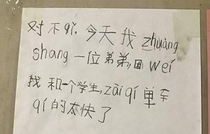 对不qǐ,今天我zhuàng
shang一位弟弟,因wéi
我和一个学生,zài qí单车
qí的太快了